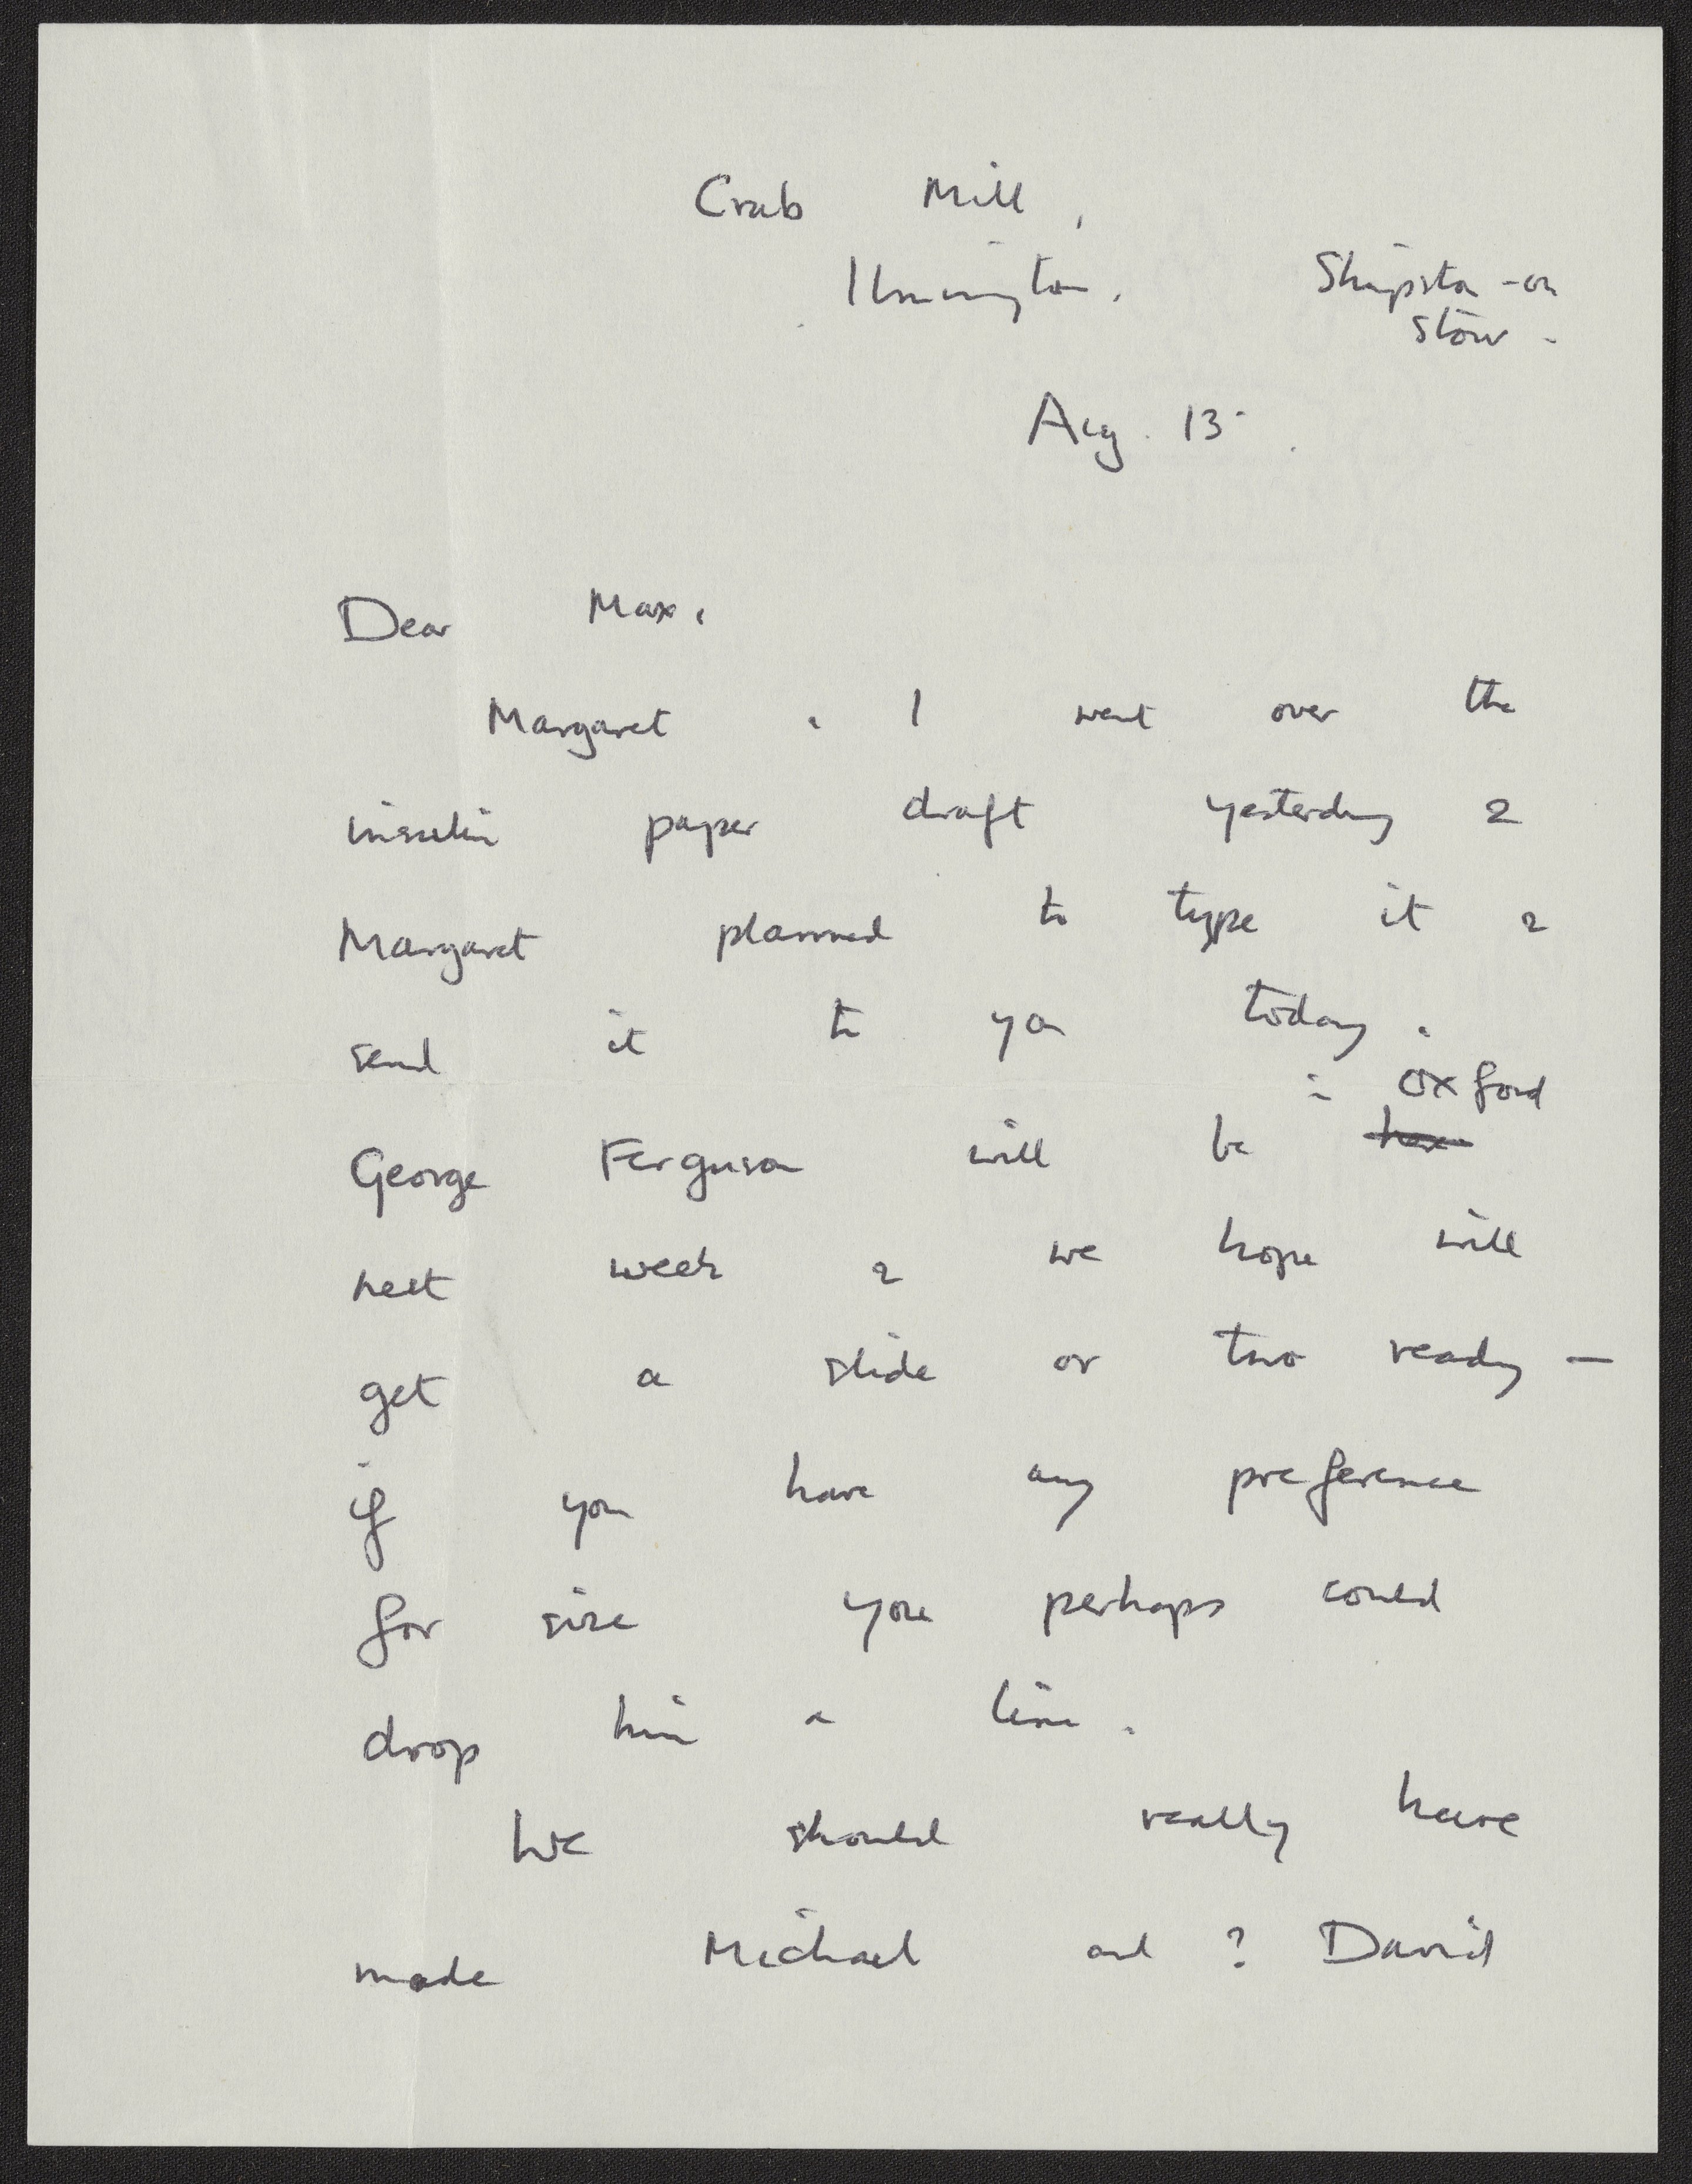 Crab Mill,
Ilmington. Shipston-on
Stour.
Aug. 13.
Dear Max,
Margaret & I went over the
insulin paper draft yesterday &
Margaret planned to type it &
send it to you today.
in Oxford
George Ferguson will be
next week & we hope will
get a slide or two ready —
if you have any preference
for size you perhaps could
drop him a line.
We should really have
made Michael and ? David